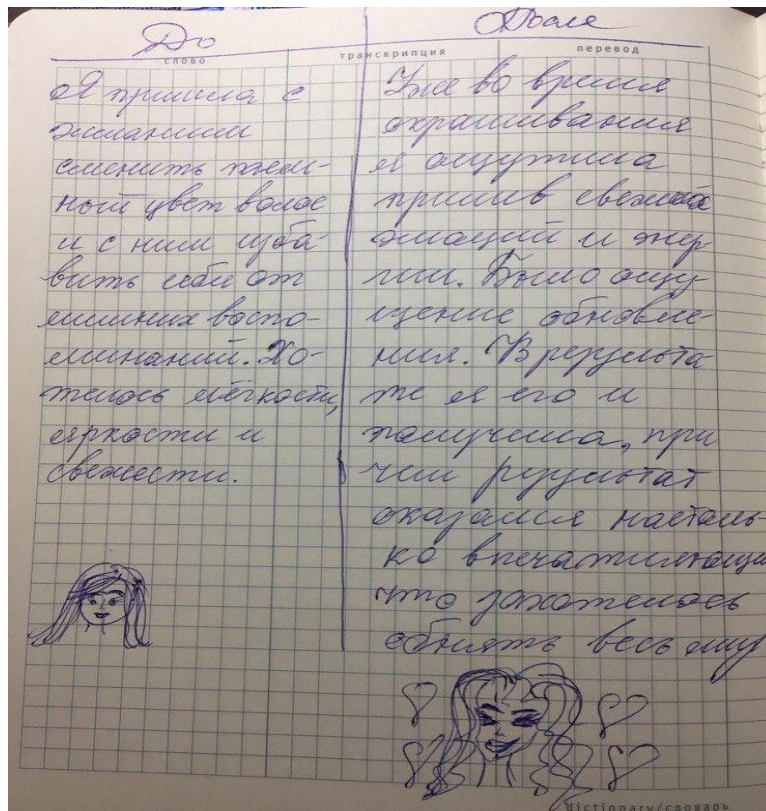 До
После
слово
транскрипция
перевод
Я пришла с
желанием
сменить тём-
ный цвет волос
и с ним изба-
вить себя от
лишних воспо-
минаний. Хо-
телось лёгкости,
яркости и
свежести.
Уже во время
окрашивания
я ощутила
прилив свежих
эмоций и энер-
гии. Было ощу-
щение обновле-
ния. В результа-
те я его и
получила, при
чем результат
оказался настоль-
ко впечатляющи
что захотелось
обнять весь мир
dictionary/словарь